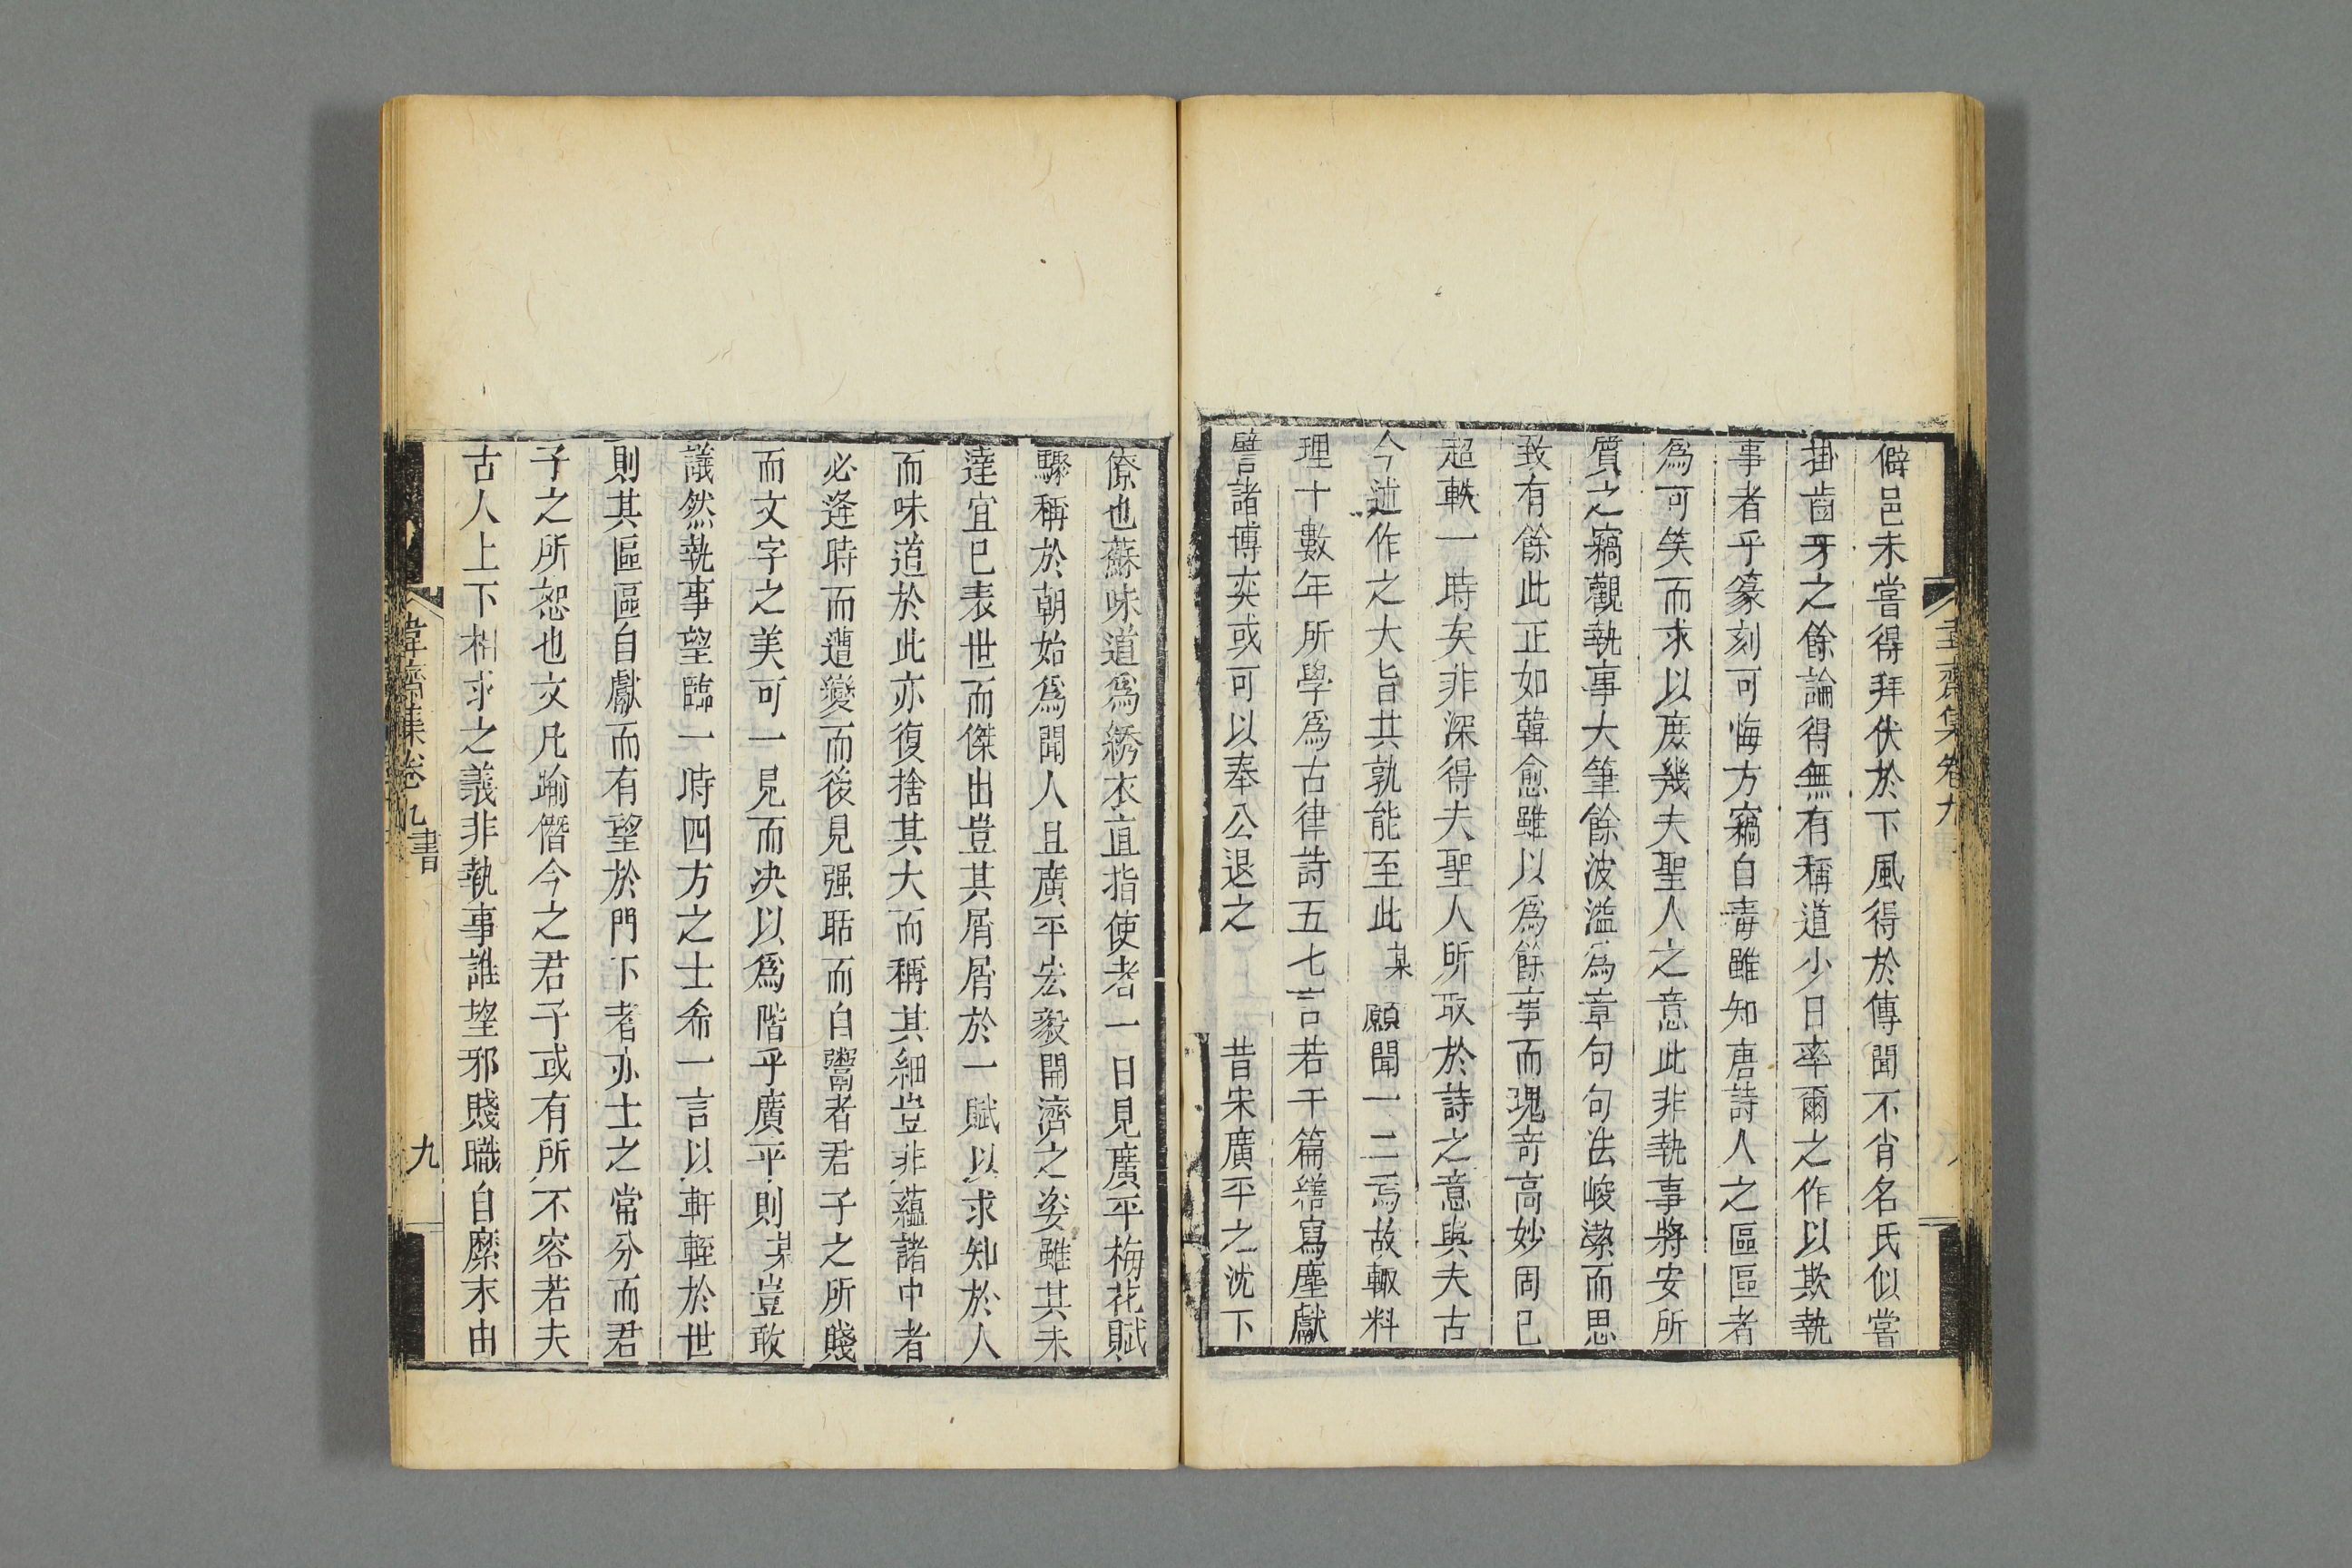 僻邑未嘗得拜伏於下風得於傳聞不肖名氏似嘗
掛齒牙之餘論得無有稱道少日率爾之作以欺執
事者乎篆刻可悔方竊自毒雖知唐詩人之區區者
爲可笑而求以庶幾夫聖人之意此非執事將安所
質之竊觀執事大筆餘波溢爲章句句法峻潔而思
致有餘此正如韓愈雖以爲餘事而瑰奇高妙固已
超軼一時矣非深得夫聖人所取於詩之意與夫古
今述作之大旨其孰能至此某願聞一二焉故輙料
理十數年所學爲古律詩五七言若干篇繕寫塵獻
譬諸博奕或可以奉公退之 昔宋廣平之沈下
僚也蘇味道爲綉衣直指使者一日見廣平梅花賦
驟稱於朝始爲聞人且廣平宏毅開濟之姿雖其未
達宜已表世而傑出豈其屑屑於一賦以求知於人
而味道於此亦復捨其大而稱其細豈非蘊諸中者
必逢時而遭變而後見强聒而自鬻者君子之所賤
而文字之美可一見而决以爲階乎廣平則某豈敢
議然執事望臨一時四方之士希一言以軒輊於世
則其區區自獻而有望於門下者亦士之常分而君
子之所恕也文凡踰僭今之君子或有所不容若夫
古人上下相求之義非執事誰望邪賤職自縻末由
韋齋集卷九 書 九